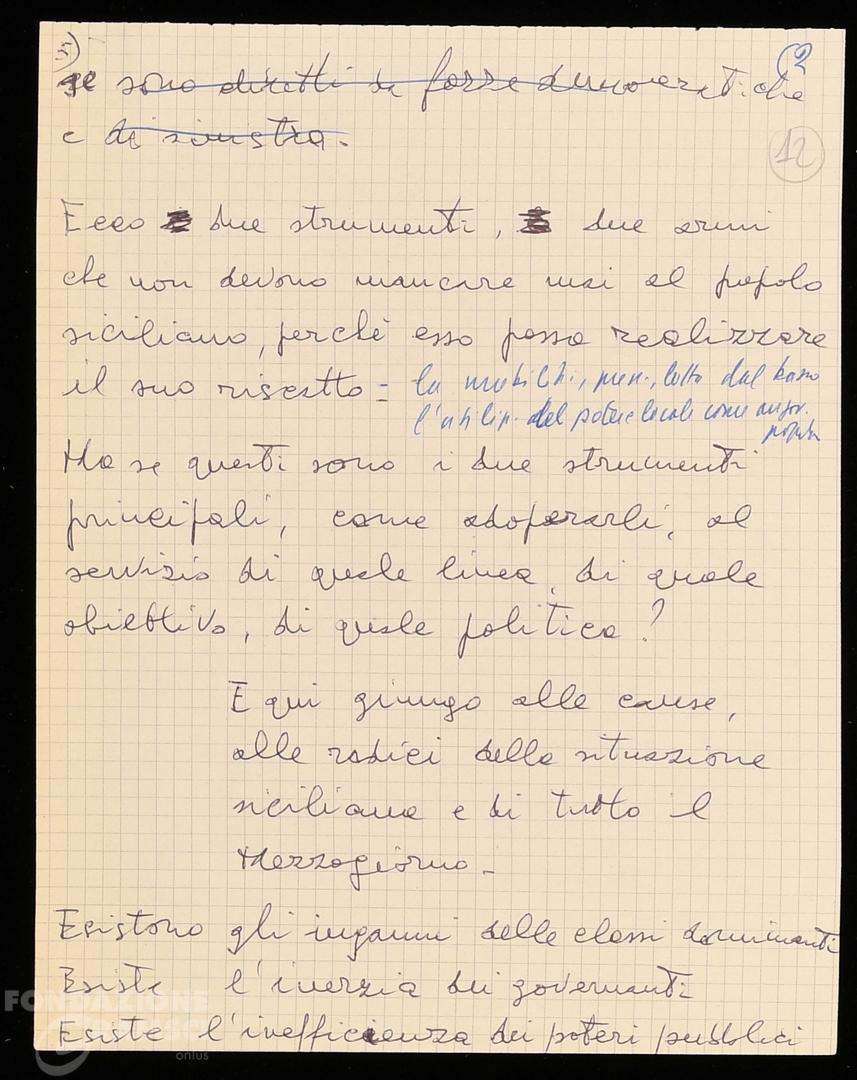 5)
(2
se sono diretti da forze democratiche
e di sinistra.
12
Ecco due strumenti, due armi
che non devono mancare mai al popolo
siciliano, perchè esso possa realizzare
il suo riscatto = la lotta dal basso
l'utiliz. del potere locale come
Ma se questi sono i due strumenti
principali, come adoperarli, al
servizio di quale linea, di quale
obiettivo, di quale politica?
E qui giungo alle cause,
alle radici della situazione
siciliana e di tutto il
Mezzogiorno -
Esistono gli inganni delle classi dominanti
Esiste l'inerzia dei governanti
Esiste l'inefficienza dei poteri pubblici
FONDAZIONE
onlus